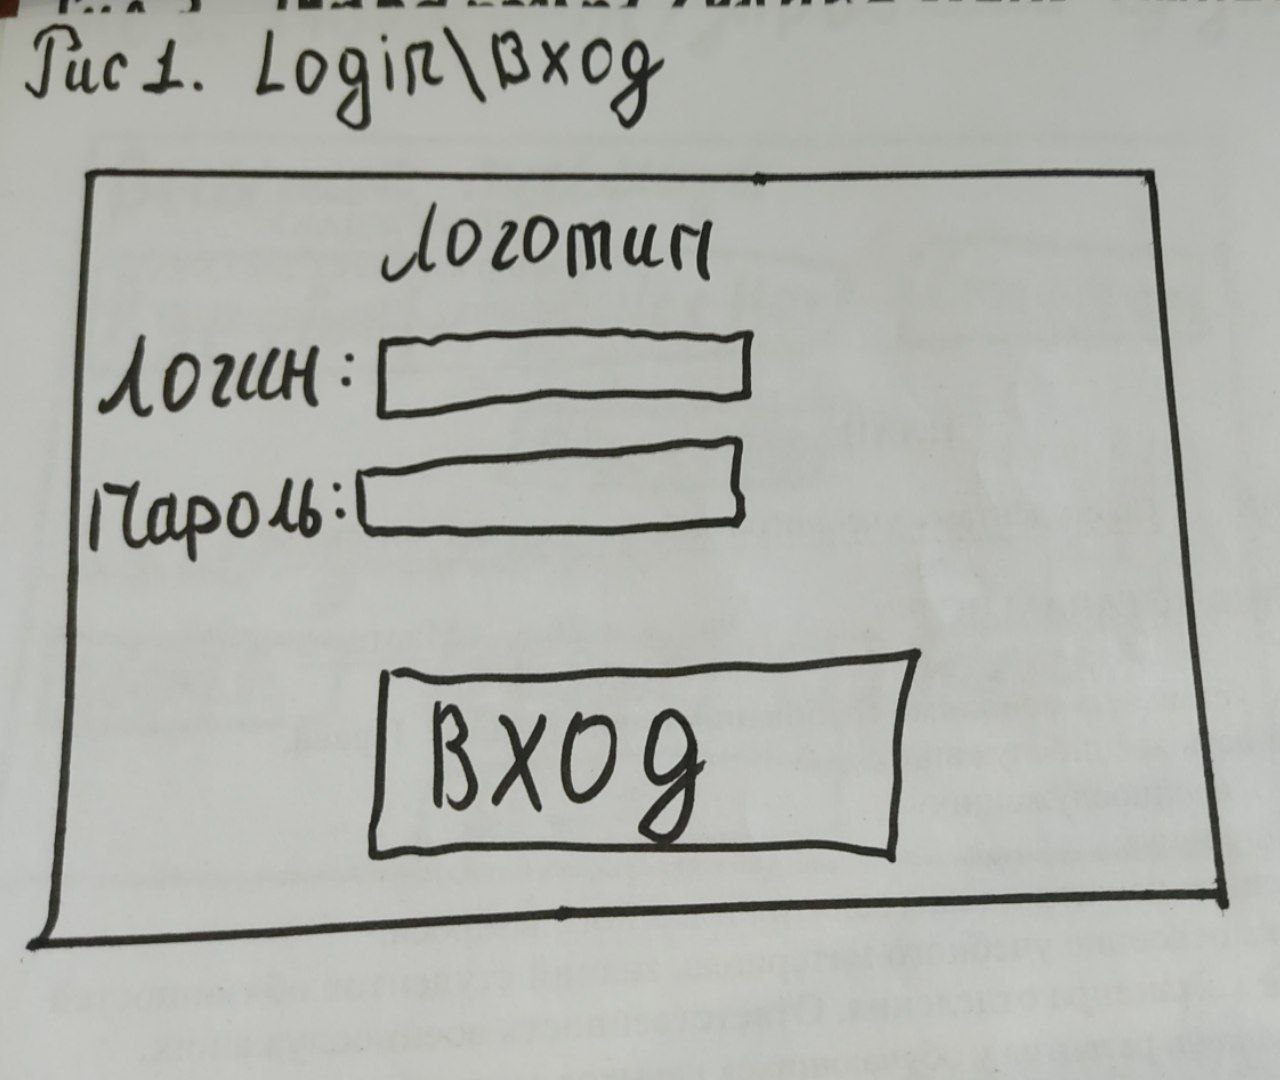 Рис 1. Login\Вход
Логотип
Логин:
Пароль:
Вход